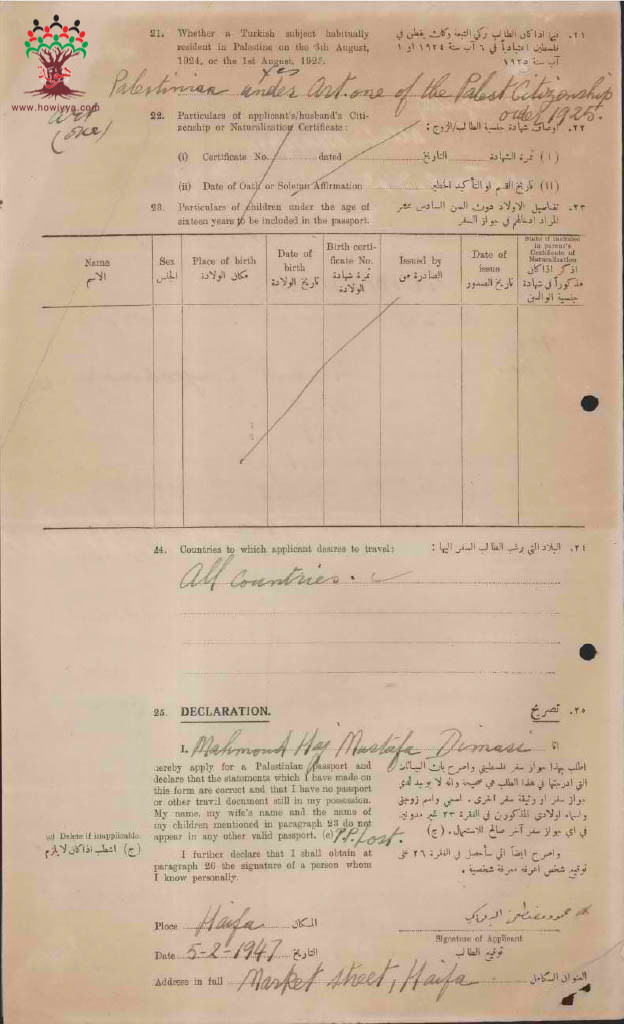 www.howiyya.com
21. Whether a Turkish subject habitually
resident in Palestine on the 6th August,
1924, or the 1st August, 1925.
Yes
٢١. فيما اذا كان الطالب تركي التبعة وكان يقطن في
فلسطين اعتيادياً في ٦ آب سنة ١٩٢٤ او ١
آب سنة ١٩٢٥
Palestinian under Art. one of the Palest Citizenship
order 1925.
Art
(one)
22. Particulars of applicant's/husband's Citi-
zenship or Naturalization Certificate:
٢٢. اوصاف شهادة جنسية الطالب/الزوج:
(i) Certificate No. dated التاريخ (١) نمرة الشهادة
(ii) Date of Oath or Solemn Affirmation (١١) تاريخ القسم او التأكيد الخطير
23. Particulars of children under the age of
sixteen years to be included in the passport.
٢٣. تفاصيل الاولاد دون السن السادس عشر
المراد ادخالهم في جواز السفر
Name
الاسم
Sex
الجنس
Place of birth
مكان الولادة
Date of
birth
تاريخ الولادة
Birth certi-
ficate No.
نمرة شهادة
الولادة
Issued by
الصادرة من
Date of
issue
تاريخ الصدور
State if included
in parent's
Certificate of
Naturalization
اذكر اذا كان
مذكوراً في شهادة
جنسية الوالدين
24. Countries to which applicant desires to travel: ٢٤. البلاد التي يرغب الطالب السفر اليها:
All countries.
25. DECLARATION. ٢٥. تصريح
I, Mahmoud Haj Mustafa Dimasi انا
hereby apply for a Palestinian passport and
declare that the statements which I have made on
this form are correct and that I have no passport
or other travel document still in my possession.
My name, my wife's name and the name of
my children mentioned in paragraph 23 do not
appear in any other valid passport. (c) P.P. lost.
I further declare that I shall obtain at
paragraph 26 the signature of a person whom
I know personally.
اطلب بهذا جواز سفر فلسطيني واصرح بان البيانات
التي ادرجتها في هذا الطلب هي صحيحة وانه لا يوجد لدي
جواز سفر او وثيقة سفر اخرى. اسمي واسم زوجتي
واسماء اولادي المذكورين في الفقرة ٢٣ غير مدونين
في اي جواز سفر آخر صالح للاستعمال. (ج)
واصرح ايضاً اني سأحصل في الفقرة ٢٦ على
توقيع شخص اعرفه معرفة شخصية.
(c) Delete if inapplicable.
(ج) اشطب اذا كان لا يلزم
Place Haifa المكان
محمود مصطفى
Signature of Applicant
توقيع الطالب
Date 5-2-1947 التاريخ
Address in full Market street, Haifa العنوان الكامل